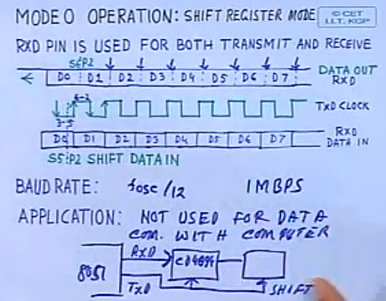 MODE 0 OPERATION: SHIFT REGISTER MODE
© CET
I.I.T. KGP
RXD PIN IS USED FOR BOTH TRANSMIT AND RECEIVE
S6P2
D0 D1 D2 D3 D4 D5 D6 D7
DATA OUT
RXD
6-2
TXD CLOCK
3-5
D0 D1 D2 D3 D4 D5 D6 D7
RXD
DATA IN
S5:P2 SHIFT DATA IN
BAUD RATE: fosc/12 1 MBPS
APPLICATION: NOT USED FOR DATA
COM. WITH COMPUTER
8051
RXD
CD4094
TXD
SHIFT